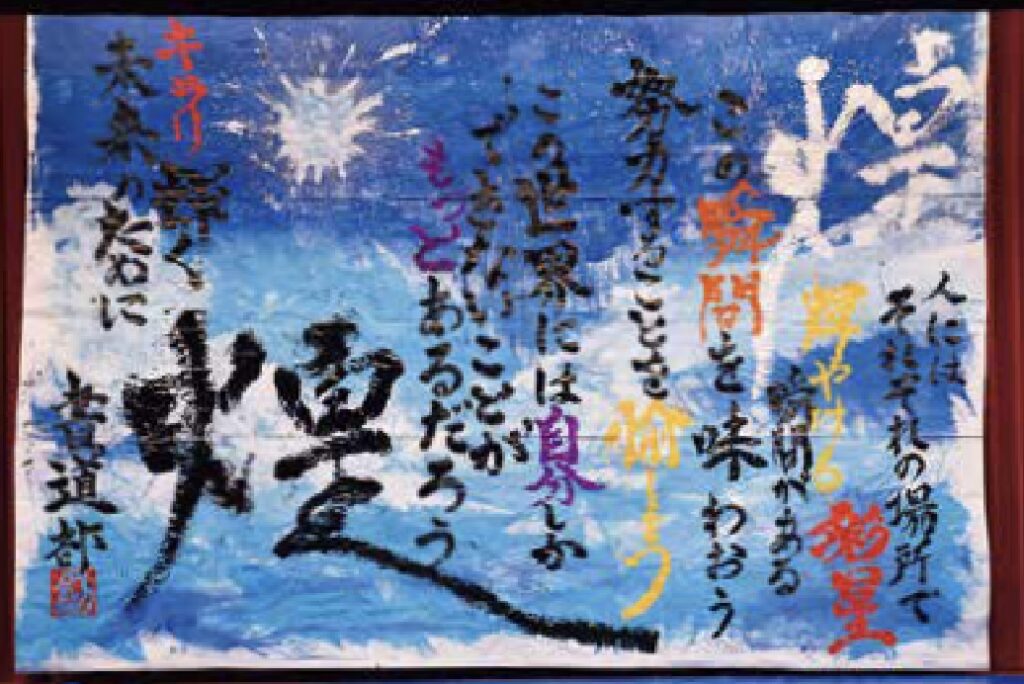 人には
それぞれの場所で
輝やける
瞬間がある
この瞬間を味わおう
努力することを愉しもう
この世界には自分しか
できないことが
もっとあるだろう
煌
輝く
未来のために
書道部